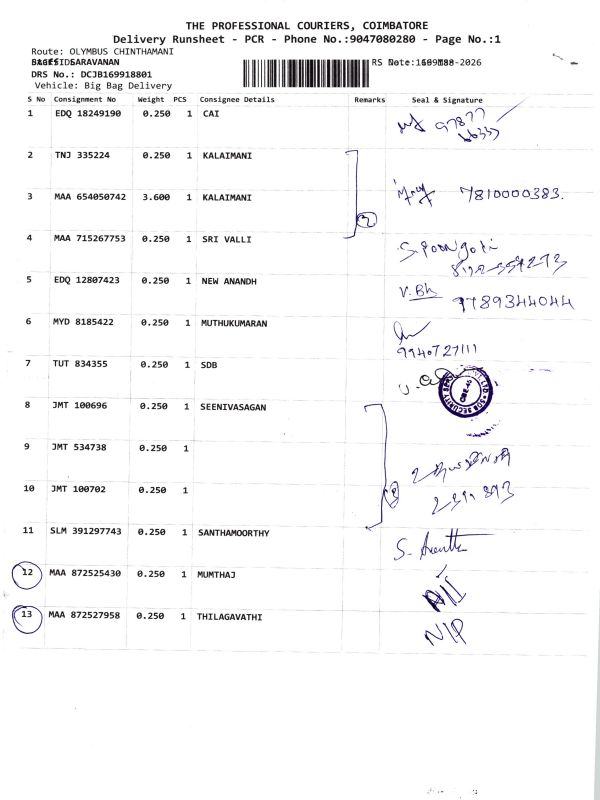 THE PROFESSIONAL COURIERS, COIMBATORE
Delivery Runsheet - PCR - Phone No.:9047080280 - Page No.:1
Route: OLYMBUS CHINTHAMANI
SARAVANAN
DRS No.: DCJB169918801
Vehicle: Big Bag Delivery
S No Consignment No Weight PCS Consignee Details Remarks Seal & Signature
1 EDQ 18249190 0.250 1 CAI 97877
66337
2 TNJ 335224 0.250 1 KALAIMANI
3 MAA 654050742 3.600 1 KALAIMANI 7810000383.
4 MAA 715267753 0.250 1 SRI VALLI S. Poongoti
5 EDQ 12807423 0.250 1 NEW ANANDH V. Bh 9789344044
6 MYD 8185422 0.250 1 MUTHUKUMARAN
9940727111
7 TUT 834355 0.250 1 SDB
8 JMT 100696 0.250 1 SEENIVASAGAN
9 JMT 534738 0.250 1
10 JMT 100702 0.250 1
11 SLM 391297743 0.250 1 SANTHAMOORTHY
12 MAA 872525430 0.250 1 MUMTHAJ
13 MAA 872527958 0.250 1 THILAGAVATHI N/P